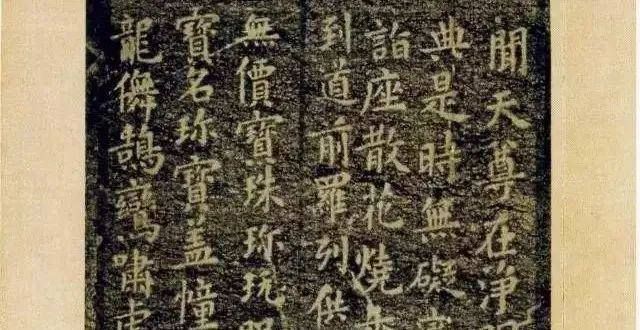 聞天尊在淨
典是時無礙
詣座散花燒香
到道前羅列供
無價寶珠珎玩
寶名珎寶盖幢
龍儛鵠鸞嘯